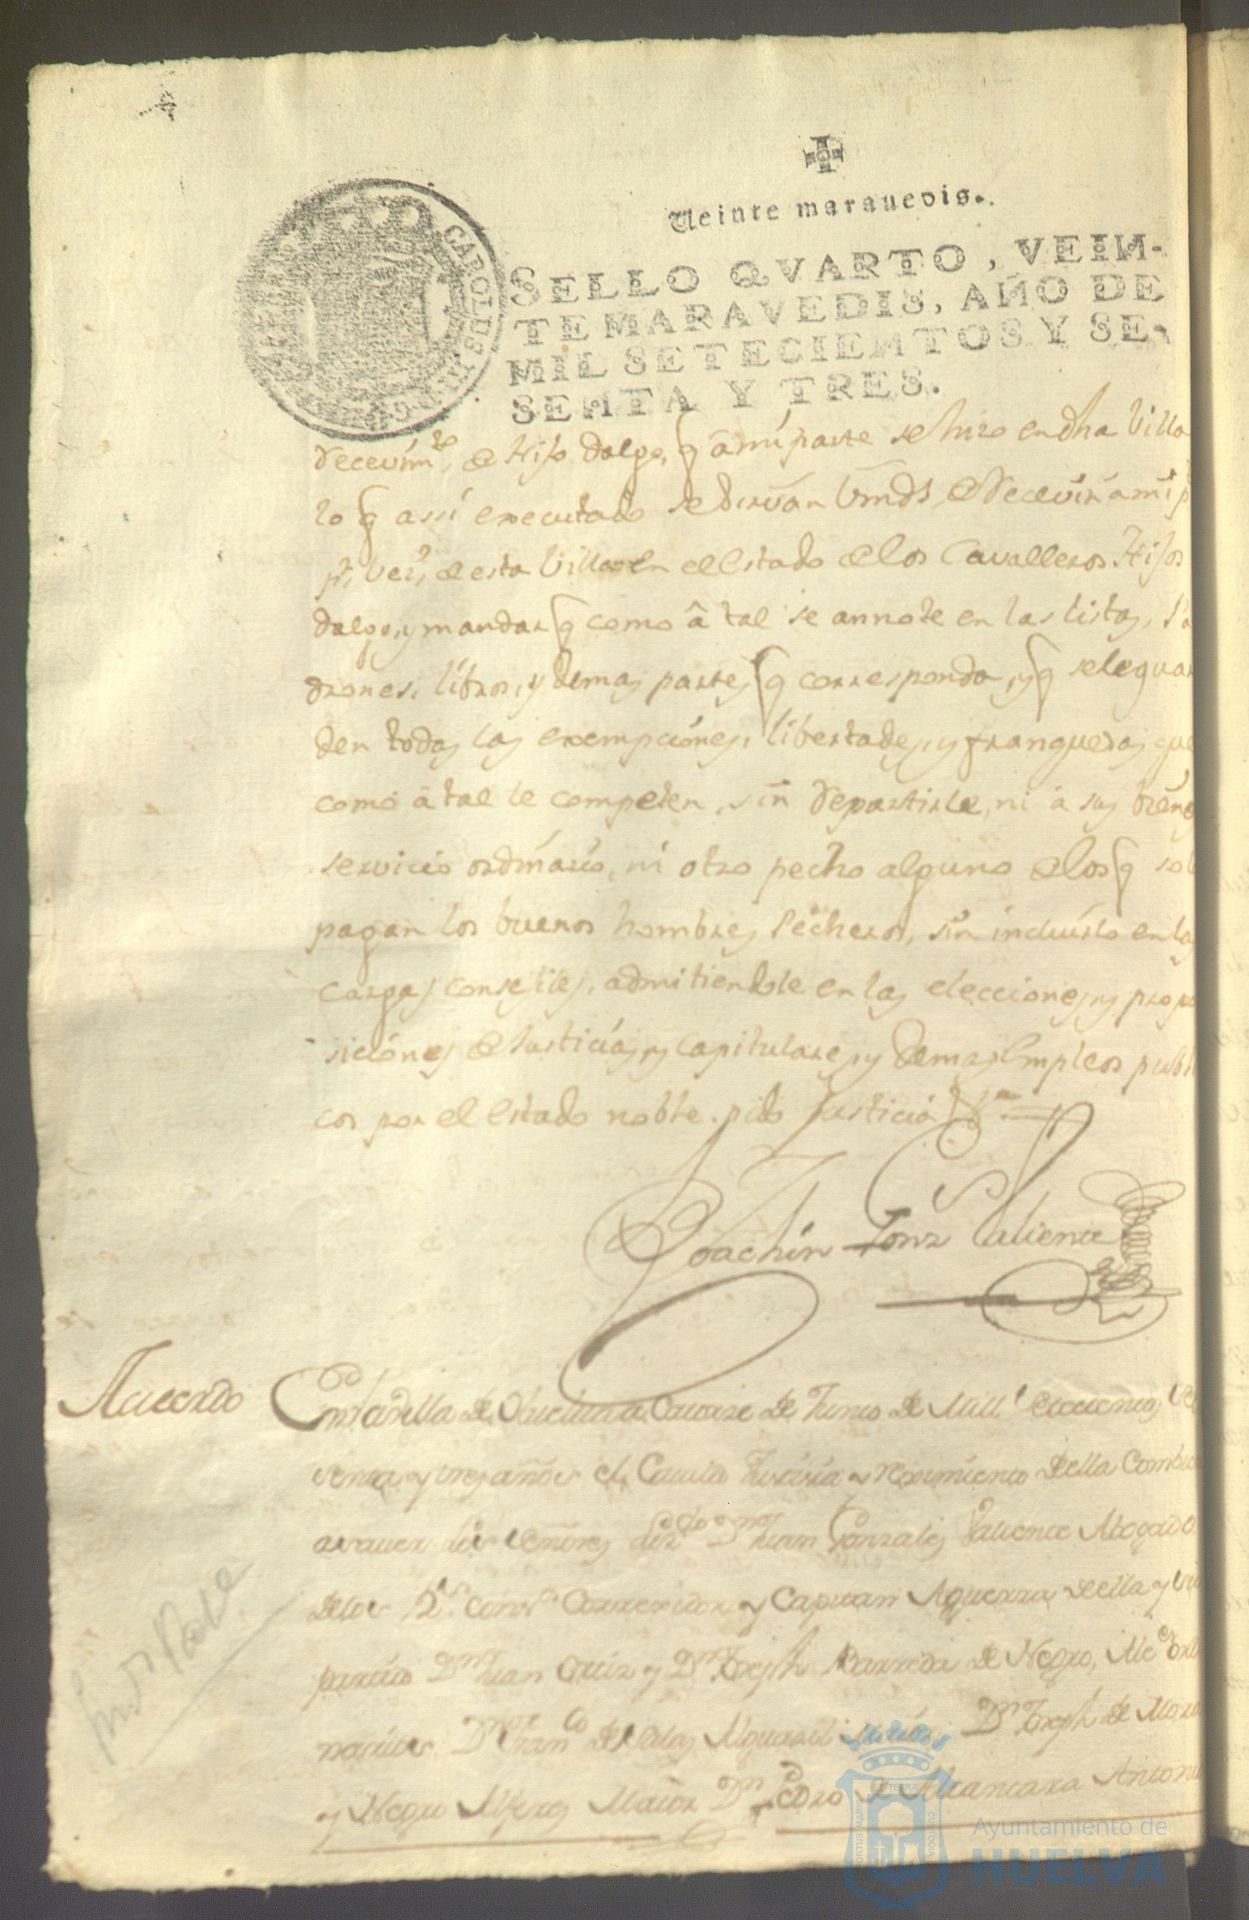 Veinte maravedis.
CAROLUS III
SELLO QVARTO, VEIN-
TE MARAVEDIS, AÑO DE
MIL SETECIENTOS Y SE-
SENTA Y TRES.
recevim.to de Hijo dalgo, q a mi parte se hizo en dha Villa
lo q assi executado se sirvan Vmds de recevir a mi p
p.r vez.o de esta Villa en el Estado de los Cavalleros Hijos
dalgo, y mandar q como â tal se annote en las listas, Pa
drones, libros, y demas partes q corresponda, y q se le guar
den todas las exempciones, libertades, y franquezas que
como â tal le competen, sin repartirle, ni a sus bienes
servicio ordinario, ni otro pecho alguno de los q sol
pagan los buenos hombres Pecheros, sin incluirlo en las
cargas consejiles, admitiendole en las elecciones, y propo
siciones de Justicias, y capitulares, y demas Empleos publi
cos por el Estado noble. pido Justicia &.a
Joachin Gonz Valiente
Acuerdo
En la Villa de Huelva a Catorze de Junio de Mill setecientos se
senta y tres años el Cavildo Justicia y reximiento della Combie
a saver los señores Liz.do Dn Juan Gonzales Valiente Abogado
de los R.s Cons.s Correxidor y Capitan Aguerra della y su
partido Dn Juan Ortiz y Dn Joseph Barreda de Negro, Alc.es ordi
narios Dn Fran.co de Alguasil Maior Dn Joseph de Mora
y Negro Alferes Maior Dn Pedro de Alcantara Antonio
PORTUS MARIS
ET TERRAE
CUSTODIA
Ayuntamiento de
HUELVA